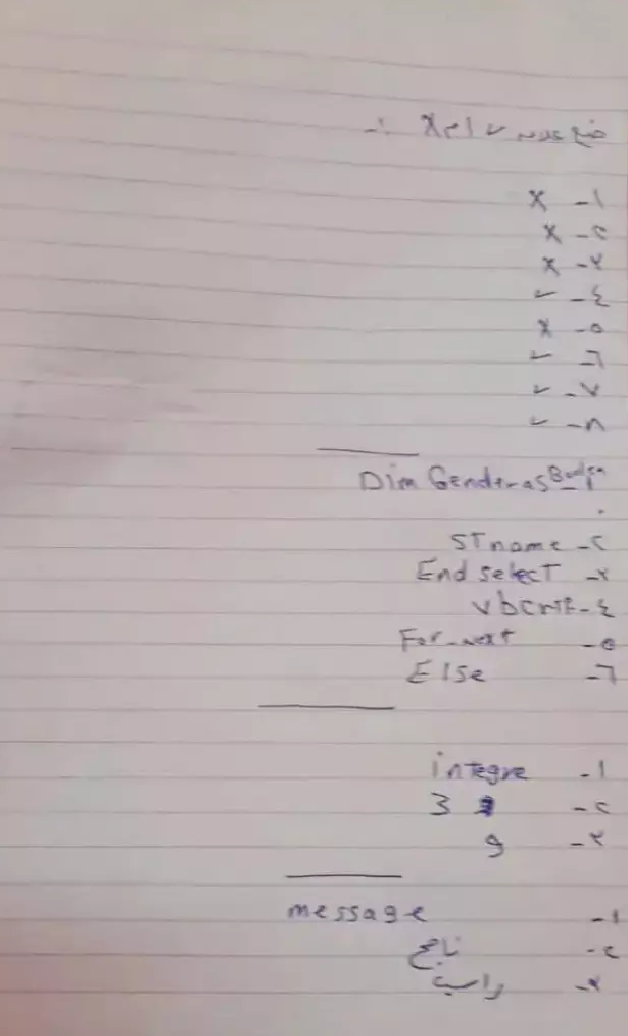 ضع علامة ✓ أم X :-
١- X
٢- X
٣- X
٤- ✓
٥- X
٦- ✓
٧- ✓
٨- ✓
١- Dim Gender as
٢- STname
٣- End select
٤-
٥- For-next
٦- Else
١- integre
٢- 3
٣- 9
١- message
٢- ناجح
٣- راسب